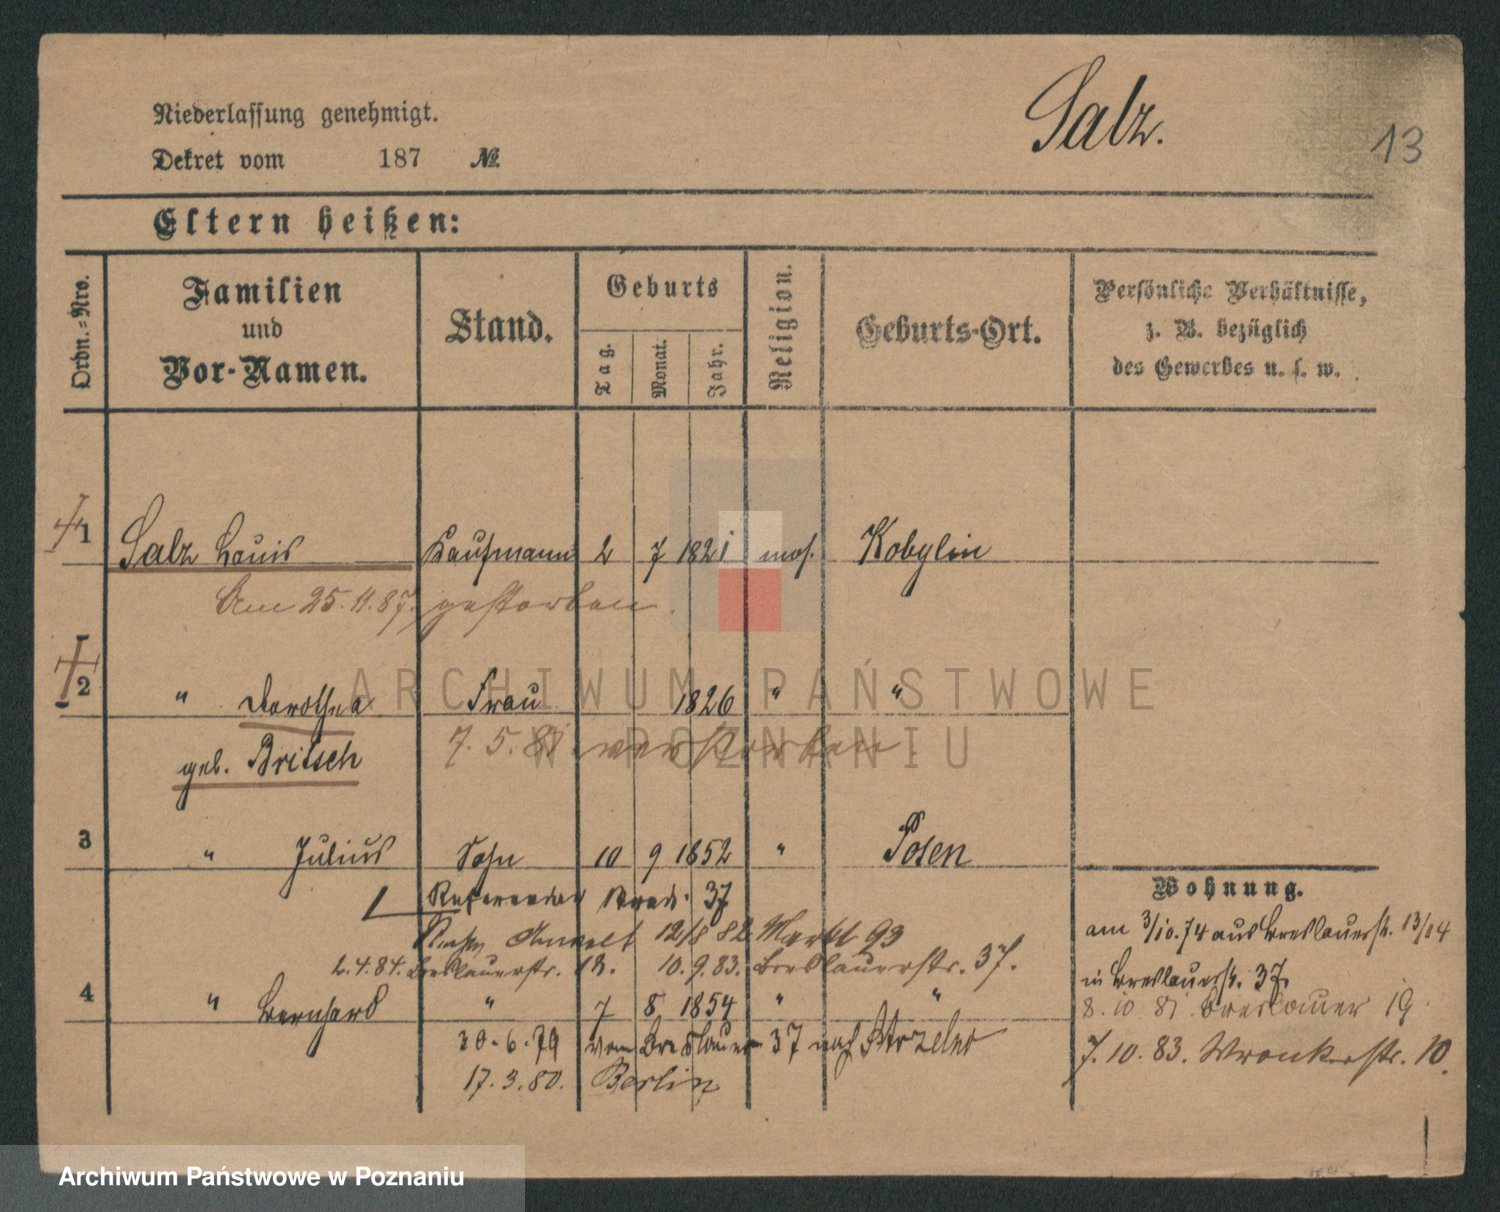 Niederlassung genehmigt.
Salz.
13
Dekret vom 187 №
Eltern heißen:
Ordn.=Nro.
Familien
und
Vor-Namen.
Stand.
Geburts
Tag.
Monat.
Jahr.
Religion.
Geburts-Ort.
Persönliche Verhältnisse,
z. B. bezüglich
des Gewerbes u. s. w.
1 Salz Louis Kaufmann 2 7 1821 mos. Kobylin
Am 25.11.87. gestorben.
2 " Dorothea Frau 1826 " "
geb. Britsch
7.5.81. verstorben.
3 " Julius Sohn 10 9 1852 " Posen
Referendar 37
Anwalt 12/8 82 Markt 93
2.4.84. Breslauerstr. 18. 10.9.83. Breslauerstr. 37.
4 " Bernhard " 7 8 1854 " "
30.6.79 von Breslauer 37 nach Strzelno
17.3.80. Berlin
Wohnung.
am 3/10.74 aus Breslauerstr. 13/14
in Breslauerstr. 37
8.10.81 Breslauer 19
7.10.83. Wronkerstr. 10.
ARCHIWUM PAŃSTWOWE
W POZNANIU
Archiwum Państwowe w Poznaniu